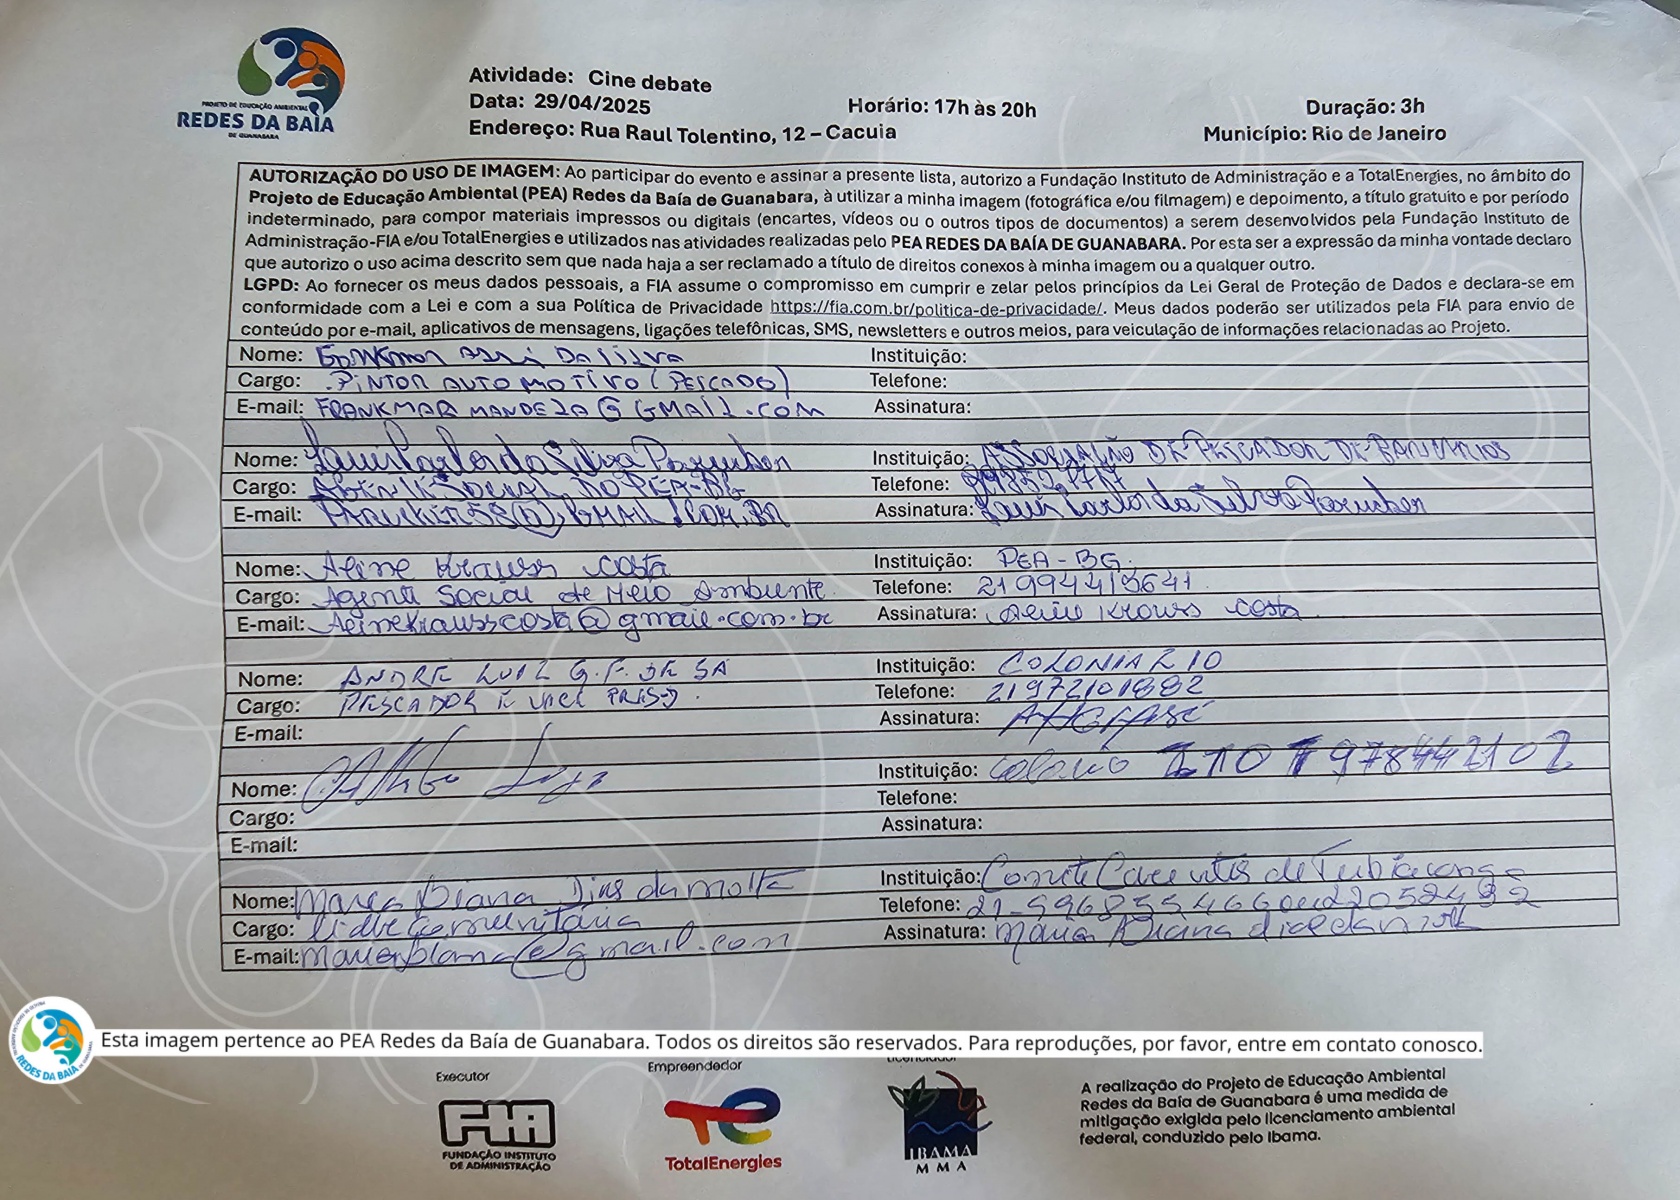 PROJETO DE EDUCAÇÃO AMBIENTAL
REDES DA BAÍA
DE GUANABARA
Atividade: Cine debate
Data: 29/04/2025 Horário: 17h às 20h Duração: 3h
Endereço: Rua Raul Tolentino, 12 – Cacuia Município: Rio de Janeiro
AUTORIZAÇÃO DO USO DE IMAGEM: Ao participar do evento e assinar a presente lista, autorizo a Fundação Instituto de Administração e a TotalEnergies, no âmbito do
Projeto de Educação Ambiental (PEA) Redes da Baía de Guanabara, à utilizar a minha imagem (fotográfica e/ou filmagem) e depoimento, a título gratuito e por período
indeterminado, para compor materiais impressos ou digitais (encartes, vídeos ou o outros tipos de documentos) a serem desenvolvidos pela Fundação Instituto de
Administração-FIA e/ou TotalEnergies e utilizados nas atividades realizadas pelo PEA REDES DA BAÍA DE GUANABARA. Por esta ser a expressão da minha vontade declaro
que autorizo o uso acima descrito sem que nada haja a ser reclamado a título de direitos conexos à minha imagem ou a qualquer outro.
LGPD: Ao fornecer os meus dados pessoais, a FIA assume o compromisso em cumprir e zelar pelos princípios da Lei Geral de Proteção de Dados e declara-se em
conformidade com a Lei e com a sua Política de Privacidade https://fia.com.br/politica-de-privacidade/. Meus dados poderão ser utilizados pela FIA para envio de
conteúdo por e-mail, aplicativos de mensagens, ligações telefônicas, SMS, newsletters e outros meios, para veiculação de informações relacionadas ao Projeto.
Nome: DA SILVA Instituição:
Cargo: PINTOR AUTOMOTIVO (PESCADO) Telefone:
E-mail: FRANKMAR MANDEZA@GMAIL.COM Assinatura:
Nome: Luis Carlos da Silva Instituição: ASSOCIAÇÃO DE PESCADOR DE
Cargo: AGENTE SOCIAL DO PEA-BG Telefone:
E-mail: GMAIL.COM.BR Assinatura: Luis Carlos da Silva
Nome: Aline Krauss Costa Instituição: PEA-BG.
Cargo: Agente Social de Meio Ambiente Telefone:
E-mail: Alinekrausscosta@gmail.com.br Assinatura: Aline Krauss Costa
Nome: ANDRE LUIZ G.F. DE SA Instituição: COLONIA Z 10
Cargo: PESCADOR E VICE PRESD. Telefone: 21972101882
E-mail: Assinatura:
Nome: Instituição: Colonio Z10 1978442102
Cargo: Telefone:
E-mail: Assinatura:
Nome: Maria Diana Dias da Motta Instituição: Comite de Tubiacanga
Cargo: Lider Comunitária Telefone:
E-mail: @gmail.com Assinatura: Maria Diana dias da motta
REDES DA BAÍA
Esta imagem pertence ao PEA Redes da Baía de Guanabara. Todos os direitos são reservados. Para reproduções, por favor, entre em contato conosco.
Executor
FIA
FUNDAÇÃO INSTITUTO
DE ADMINISTRAÇÃO
Empreendedor
TotalEnergies
Licenciador
IBAMA
MMA
A realização do Projeto de Educação Ambiental
Redes da Baía de Guanabara é uma medida de
mitigação exigida pelo licenciamento ambiental
federal, conduzido pelo Ibama.